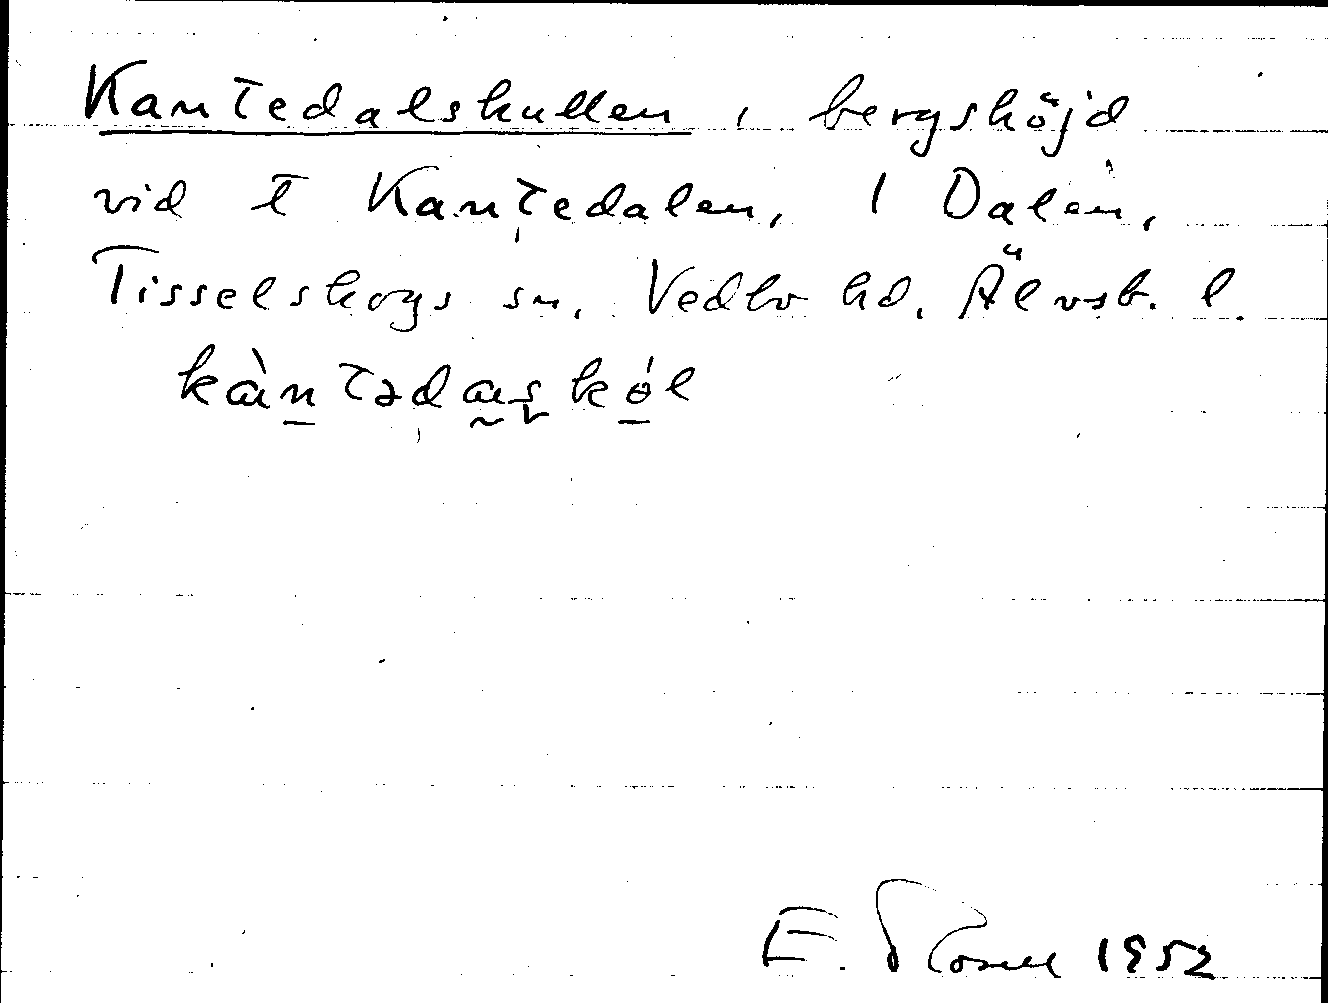 Kantedalskullen, bergshöjd
vid t Kantedalen, 1 Dalen,
Tisselskogs sn, Vedbo hd. Älvsb. l.
kàntədaʂkól
E. 1952